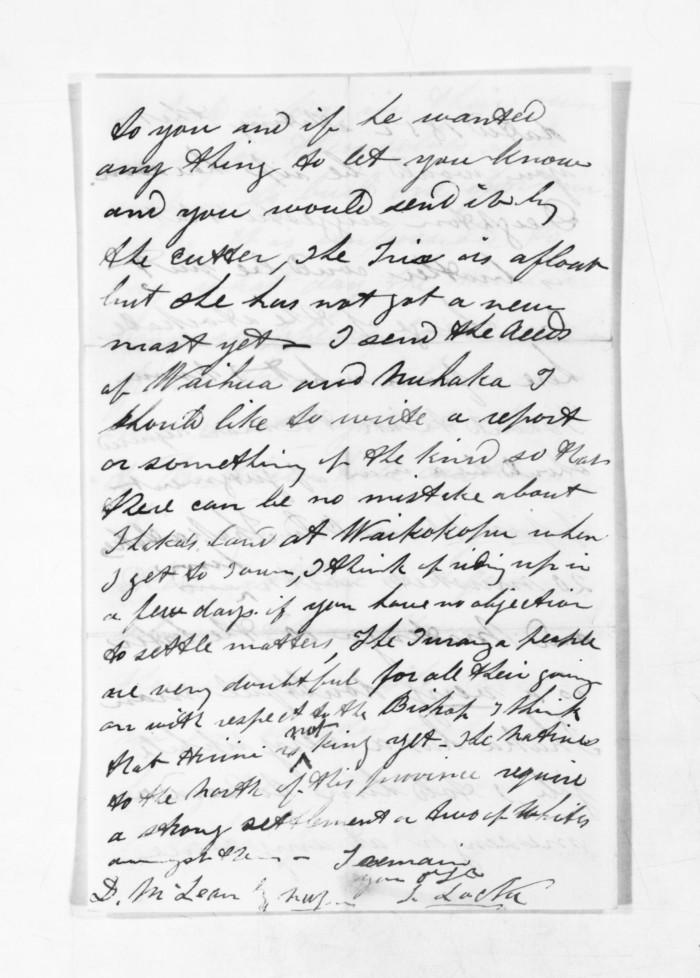 to you and if he wanted
any thing to let you know
and you would send it by
the cutter, The Trio is afloat
but she has not got a new
mast yet — I send the deeds
of Waihua and Nuhaka I
should like to write a report
or something of the kind so that
there can be no mistake about
Ihaka's land at Waikokopu when
I get to Town, I think of riding up in
a few days. if you have no objection
to settle matters, The Turanga people
are very doubtful for all their going
on with respect to the Bishop I think
that is not king yet - The Natives
to the North of this province require
a strong settlement or two of Whites
amongst them — I remain
your
D. McLean S. Locke